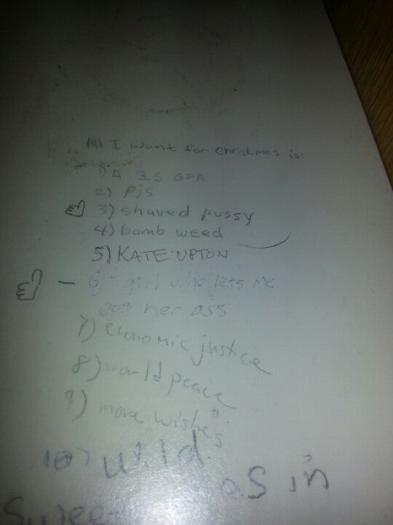 All I want for christmas is:
1) A 3.5 GPA
2) PJs
3) shaved pussy
4) bomb weed
5) KATE UPTON
6) A girl who lets me
her ass
7) economic justice
8) world peace
9) more wishes
10) wild
as in